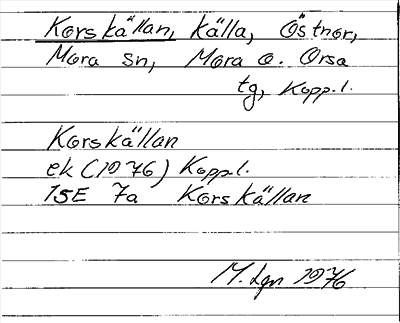 Korskällan, källa, Östnor,
Mora sn, Mora o. Orsa
tg, Kopp.l.
Korskällan
ek (1976) Kopp.l.
15E 7a Korskällan
M. Lgn 1976